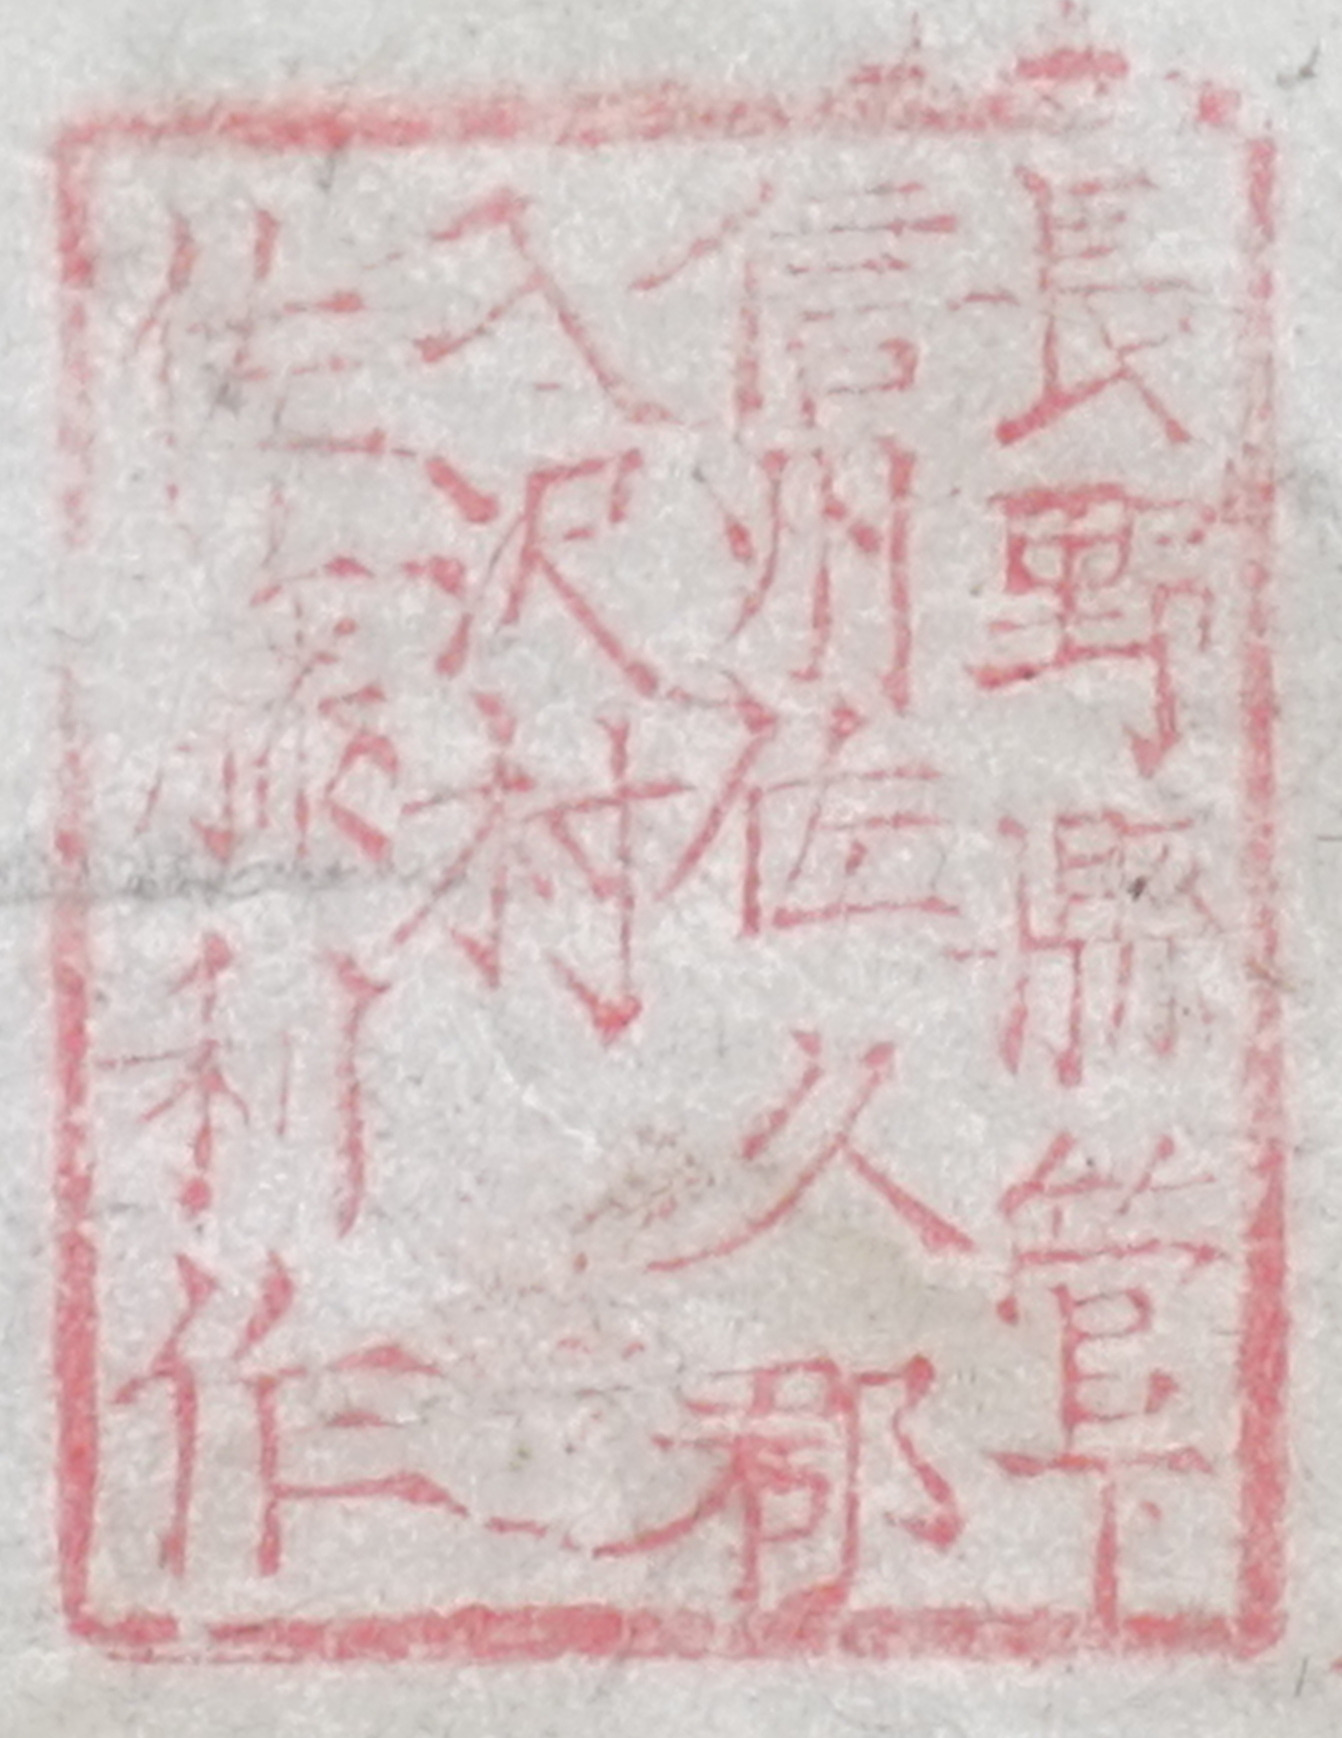 長野縣管下
信州佐久郡
入沢村
佐藤利作